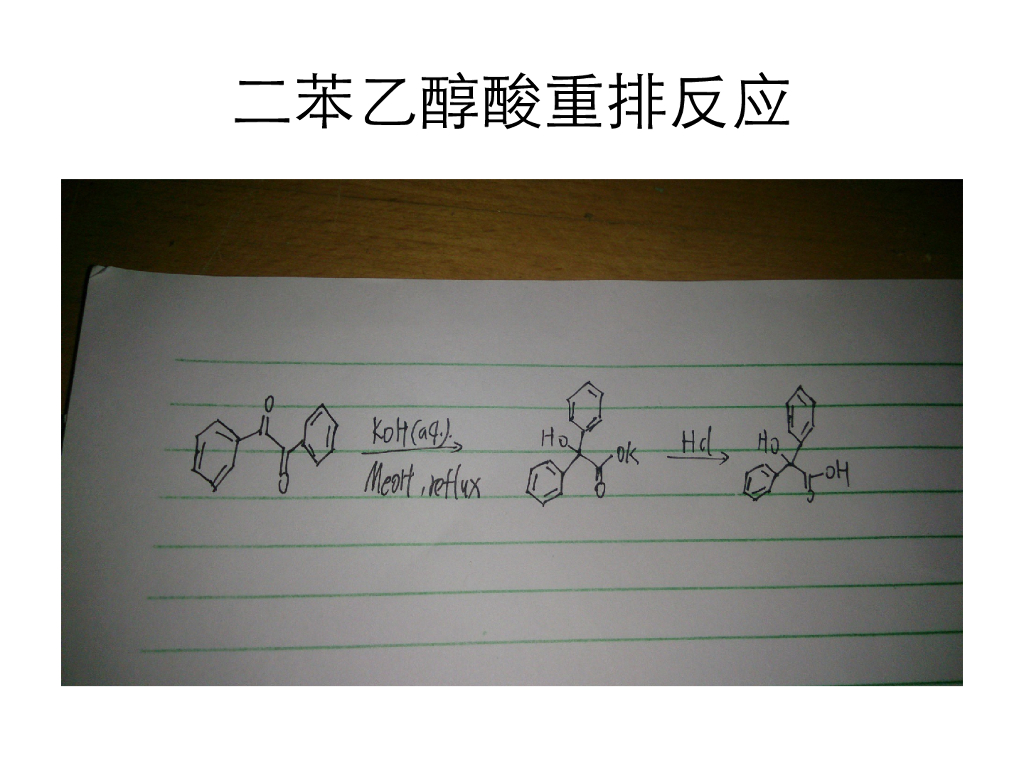 二苯乙醇酸重排反应
O
O
KOH(aq.).
MeOH, reflux
HO
OK
O
HCl
HO
OH
O